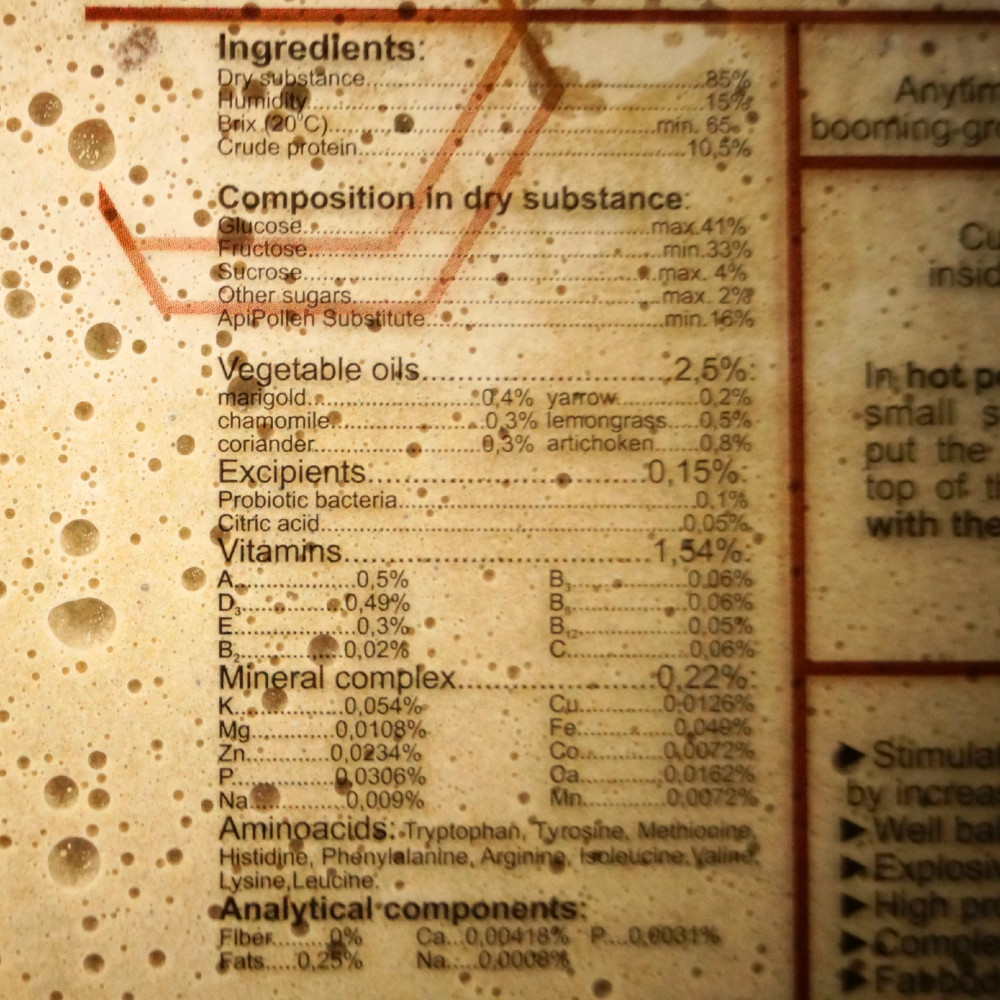 Ingredients:
Dry substance 85%
Humidity 15%
Brix (20°C) min. 65
Crude protein 10,5%
Composition in dry substance:
Glucose max.41%
Fructose min.33%
Sucrose max. 4%
Other sugars max. 2%
ApiPollen Substitute min.16%
Vegetable oils 2,5%:
marigold 0,4% yarrow 0,2%
chamomile 0,3% lemongrass 0,5%
coriander 0,3% artichoken 0,8%
Excipients 0,15%:
Probiotic bacteria 0,1%
Citric acid 0,05%
Vitamins 1,54%:
A 0,5% 0,06%
D3 0,49% 0,06%
E 0,3% B12 0,05%
B2 0,02% C 0,06%
Mineral complex 0,22%:
K 0,054% Cu 0,0126%
Mg 0,0108% Fe 0,049%
Zn 0,0234% Co 0,0072%
P 0,0306% Ca 0,0162%
Na 0,009% Mn 0,0072%
Aminoacids: Tryptophan, Tyrosine, Methionine,
Histidine, Phenylalanine, Arginine, Isoleucine,Valine,
Lysine,Leucine.
Analytical components:
Fiber 0% Ca 0,00418% P 0,0031%
Fats 0,25% Na 0,0008%
Anytim
booming gr
Cu
insid
In hot pe
small s
put the
top of th
with the
▶ Stimula
by increa
▶ Well ba
▶ Explosiv
▶ High pr
▶ Comple